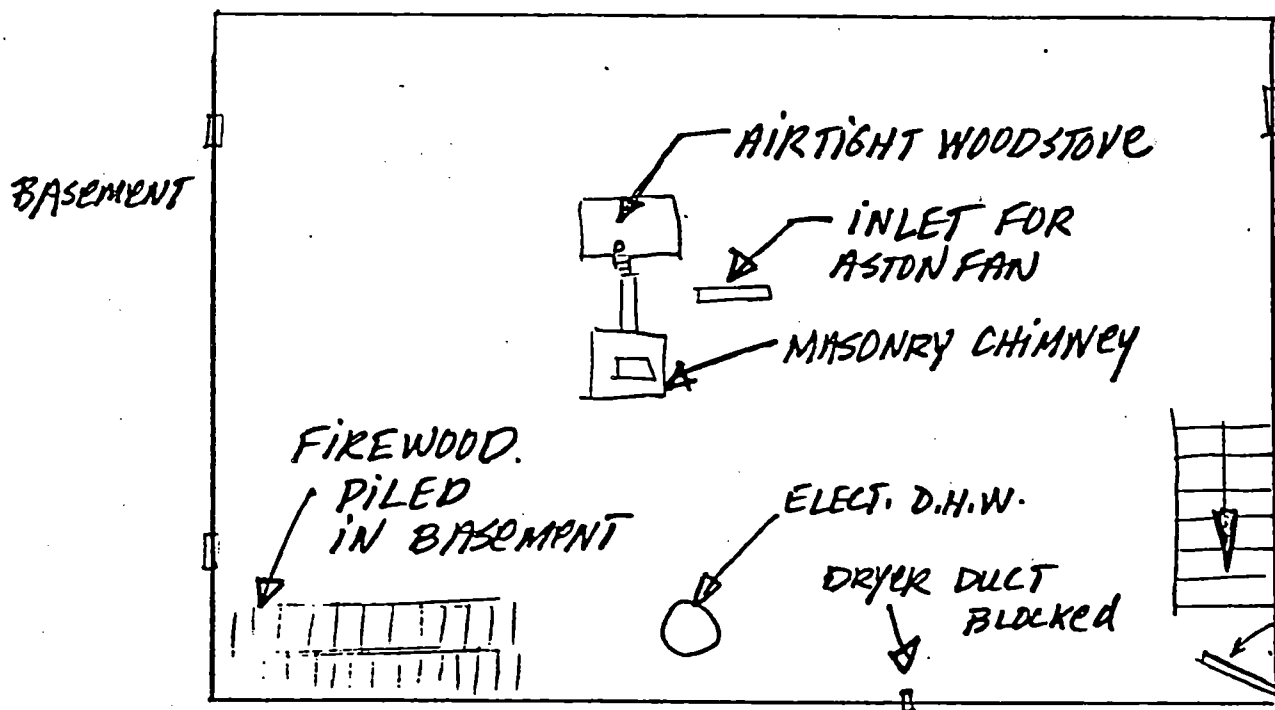 AIRTIGHT WOODSTOVE
BASEMENT
INLET FOR
ASTON FAN
MASONRY CHIMNEY
FIREWOOD.
PILED
IN BASEMENT
ELECT. D.H.W.
DRYER DUCT
BLOCKED